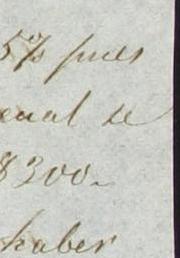 5% pues
cual se
8300.
haber